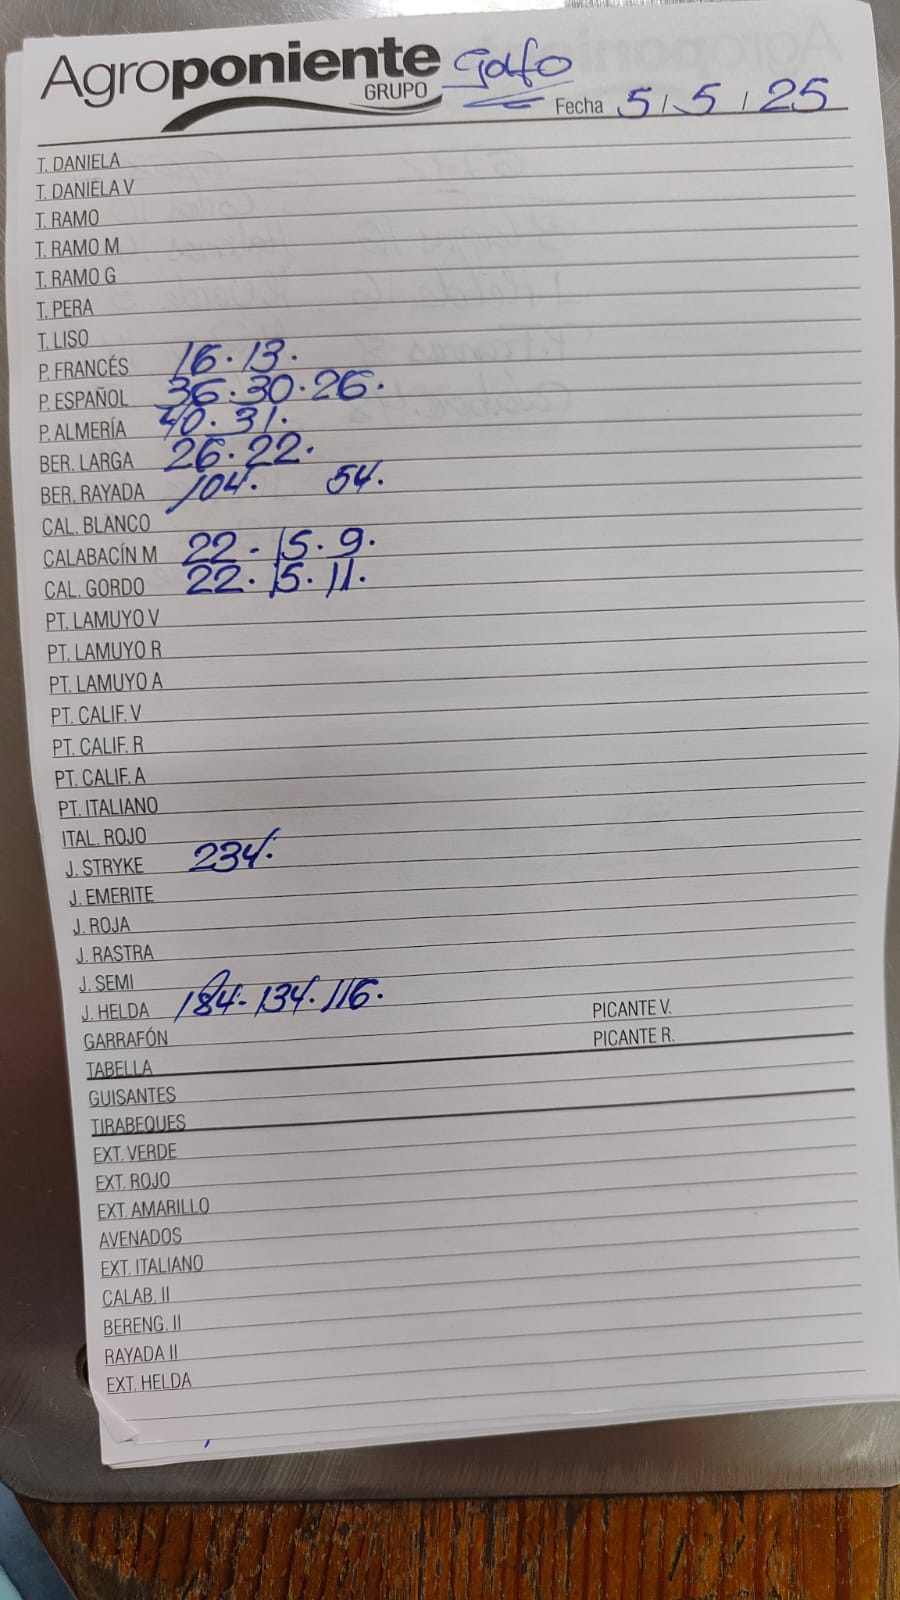 Agroponiente
GRUPO
Golfo
Fecha 5/5/25
T. DANIELA
T. DANIELA V
T. RAMO
T. RAMO M
T. RAMO G
T. PERA
T. LISO
P. FRANCÉS 16. 13.
P. ESPAÑOL 36. 30. 26.
P. ALMERÍA 40. 31.
BER. LARGA 26. 22.
BER. RAYADA 104. 54.
CAL. BLANCO
CALABACÍN M 22. 15. 9.
CAL. GORDO 22. 15. 11.
PT. LAMUYO V
PT. LAMUYO R
PT. LAMUYO A
PT. CALIF. V
PT. CALIF. R
PT. CALIF. A
PT. ITALIANO
ITAL. ROJO
J. STRYKE 234.
J. EMERITE
J. ROJA
J. RASTRA
J. SEMI
J. HELDA 184. 134. 116. PICANTE V.
GARRAFÓN PICANTE R.
TABELLA
GUISANTES
TIRABEQUES
EXT. VERDE
EXT. ROJO
EXT. AMARILLO
AVENADOS
EXT. ITALIANO
CALAB. II
BERENG. II
RAYADA II
EXT. HELDA